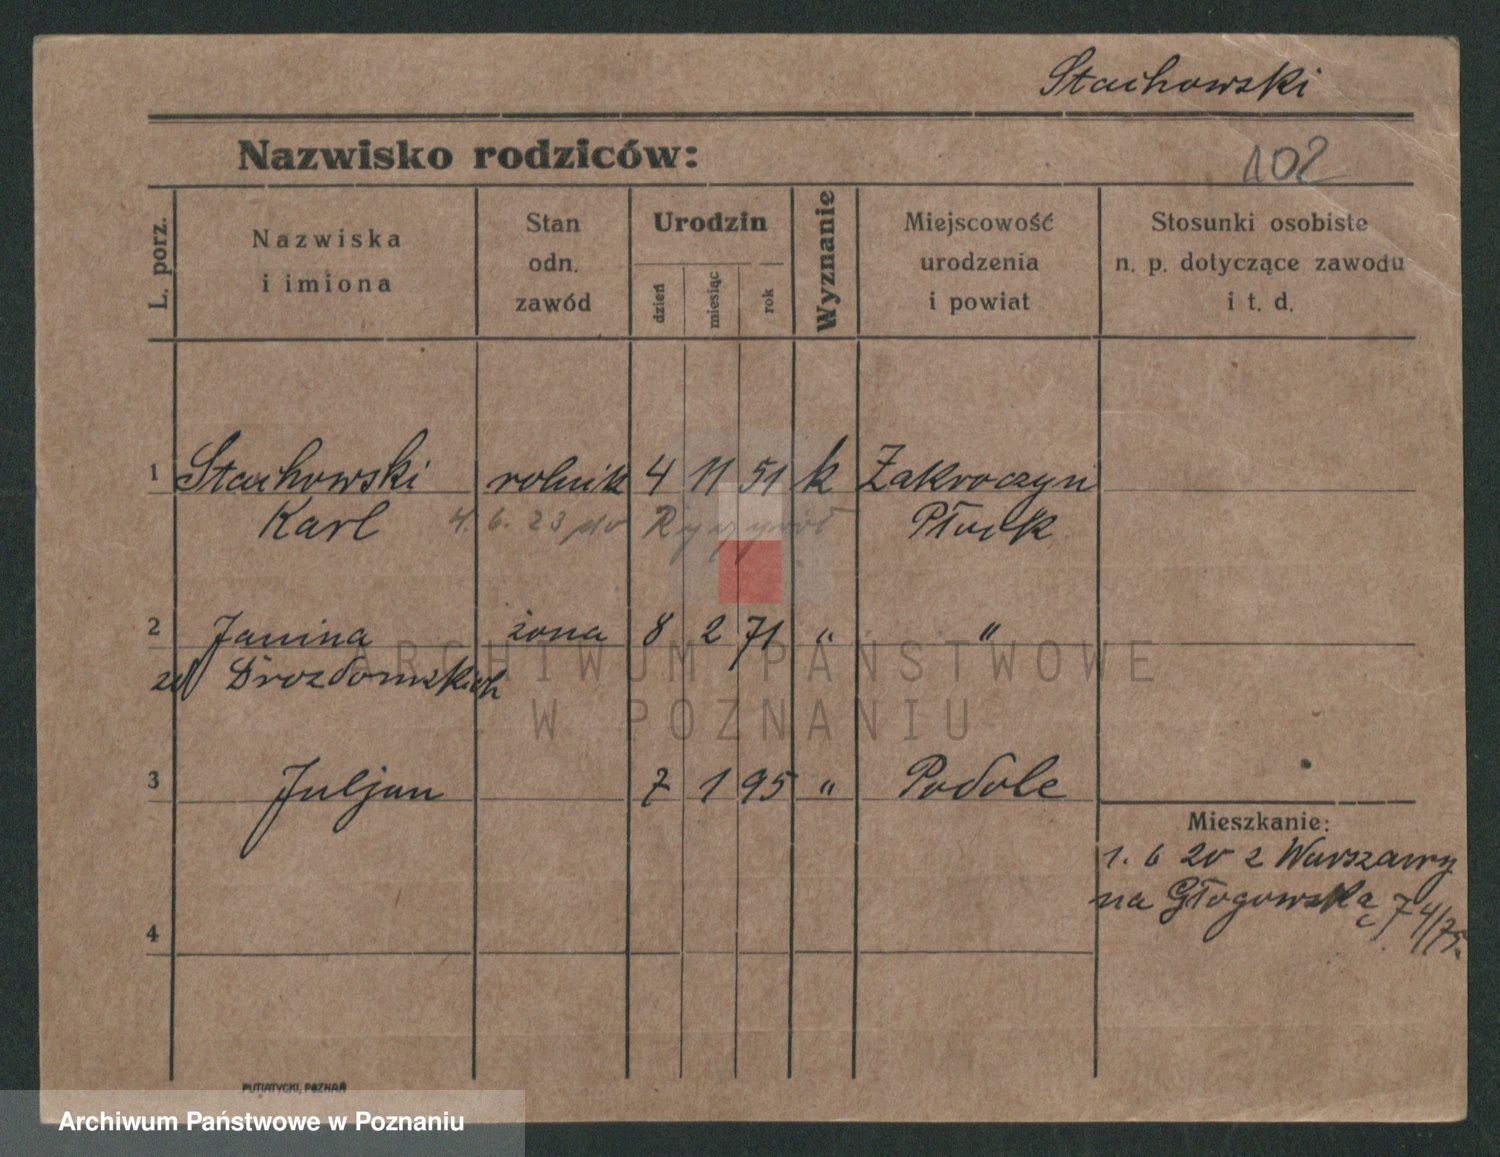 Stachowski
Nazwisko rodziców:
102
L. porz.
Nazwiska
i imiona
Stan
odn.
zawód
Urodzin
dzień
miesiąc
rok
Wyznanie
Miejscowość
urodzenia
i powiat
Stosunki osobiste
n. p. dotyczące zawodu
i t. d.
1 Stachowski rolnik 4 11 51 k Zakroczyn
Karl 4. 6. 23 do Płock
2 Janina żona 8 2 71 " "
zd Drozdowskich
3 Juljan 7 1 95 " Podole
Mieszkanie:
1. 6 20 z Warszawy
na Głogowską 74/75.
4
ARCHIWUM PAŃSTWOWE
W POZNANIU
PUTIATYCKI, POZNAŃ
Archiwum Państwowe w Poznaniu